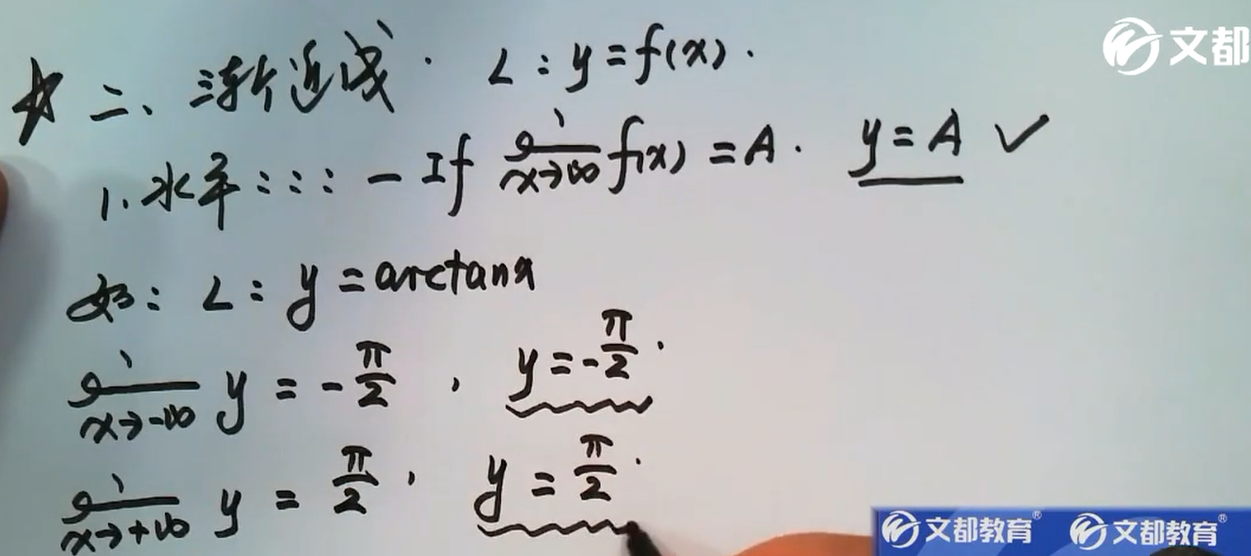 文都
☆ 二、渐近线. L: y=f(x).
1. 水平::: — If lim x→∞ f(x) = A. y=A ✓
如: L: y=arctanx
lim x→-∞ y = -π/2, y=-π/2.
lim x→+∞ y = π/2, y=π/2.
文都教育® 文都教育®